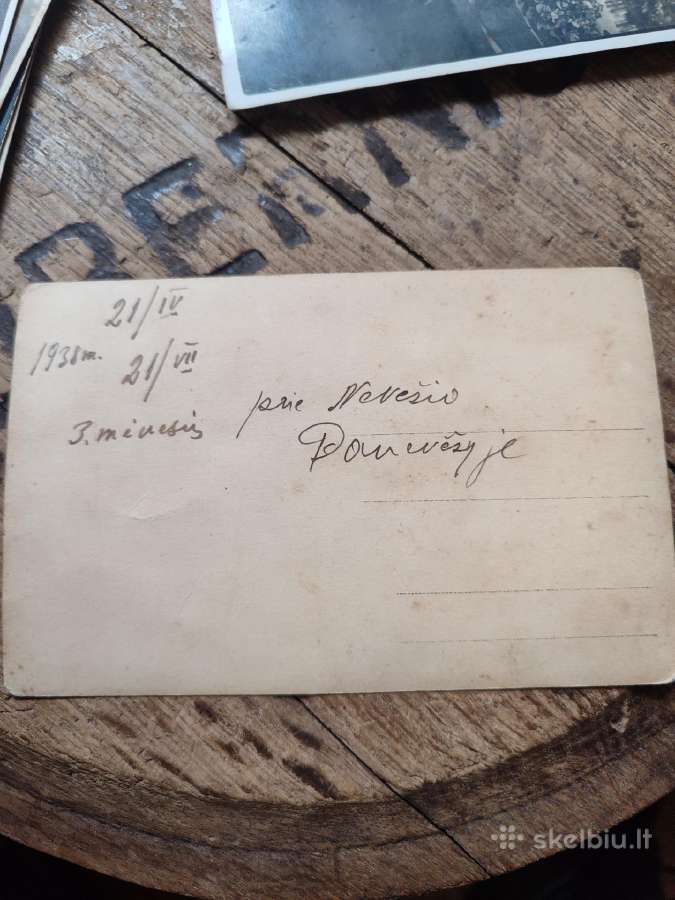 21/IV
1938 m.
21/VII
3. mėnesis
prie Nevėžio
Panevėžyje
skelbiu.lt